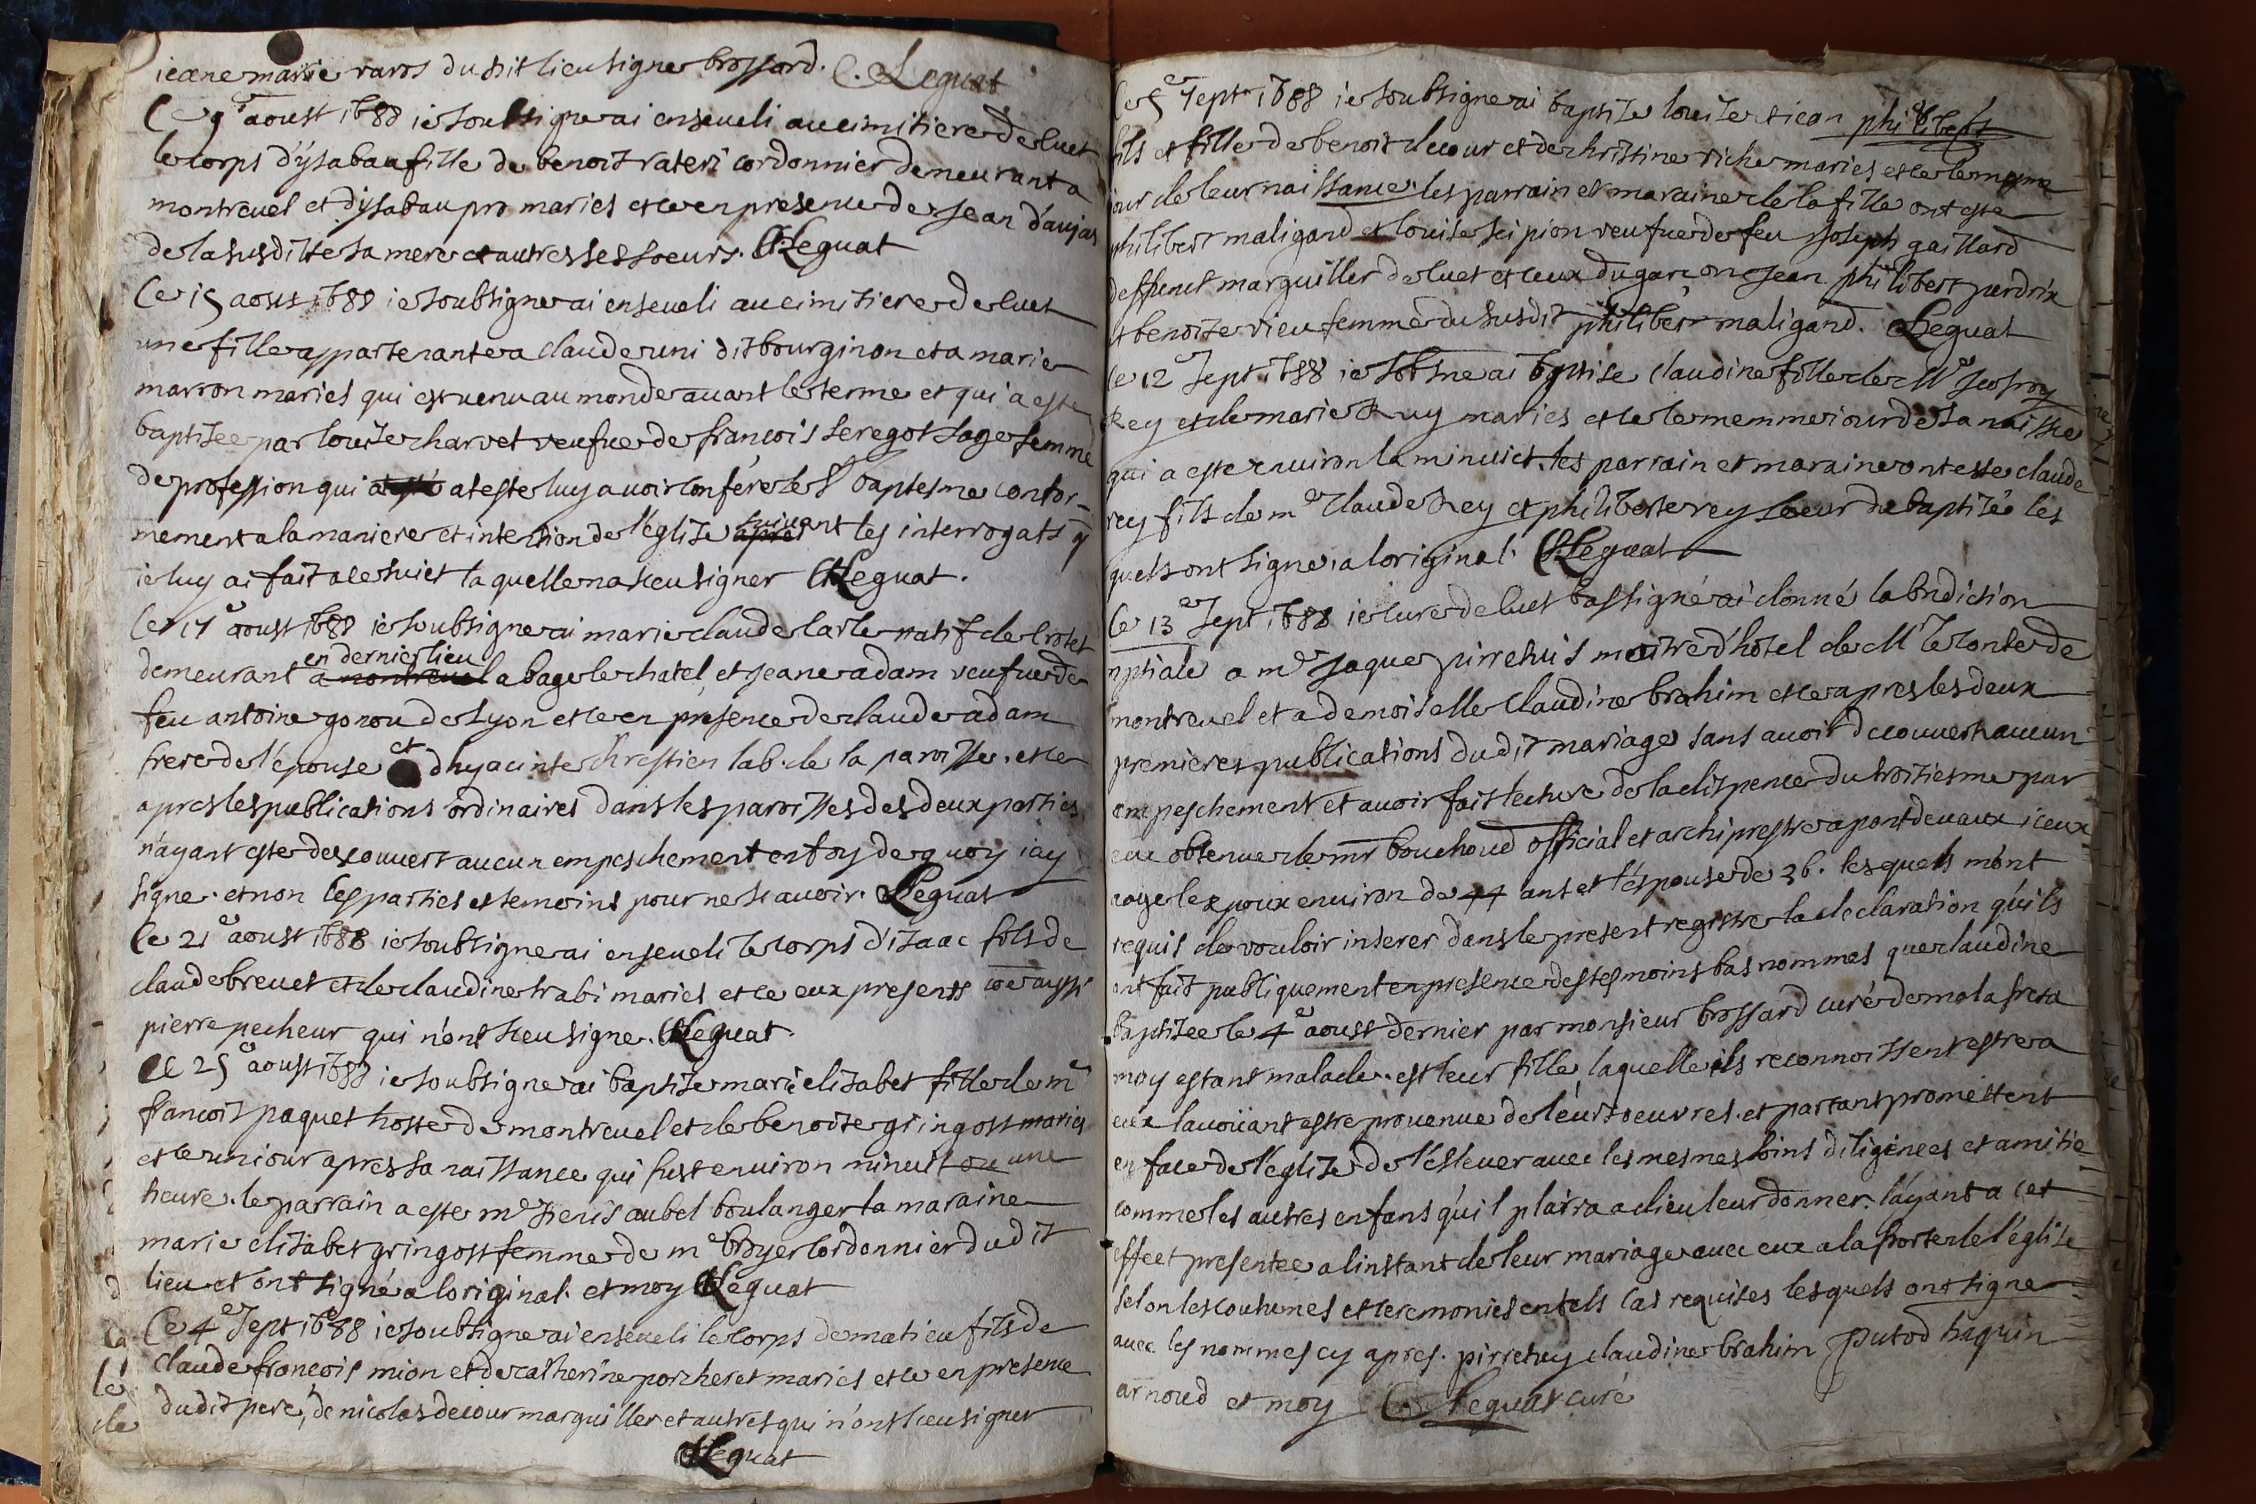 jeane marie raros du dit lieu signe brossard. C. Leguat
Ce 9e aoust 1688 ie soubsigne ai enseueli au cimitiere de cuet
le corps d'ysabau fille de benoit rateri cordonnier demeurant a
montreuel et d'ysabau pro maries et ce en presence de jean d'aujas
de la susditte sa mere et autres ses soeurs. CLeguat
Ce 15 aoust 1688 ie soubsigne ai enseueli au cimitiere de cuet
une fille appartenante a claude uni dit bourginon et a marie
marron maries qui est venu au monde auant le terme et qui a este
baptisee par louise charvet veufue de francois seregot sage femme
de profession qui ateste luy auoir conféré le St baptesme confor-
mement a la maniere et intention de l'église suiuant les interrogats q
ie luy ai fait a ce suiet laquelle na sceu signer CLeguat.
Ce 17e aoust 1688 ie soubsigne ai marie claude carle natif de crotet
demeurant en dernier lieu a bage le chatel, et jeane adam veufue de
feu antoine gonou de Lyon et ce en presence de claude adam
frere de l'épouse et d'hyacinte chrestien lab. de la paroisse. et ce
apres les publications ordinaires dans les paroisses des deux parties
n'ayant este descouuert aucun empeschement en foy de quoy iay
signe. et non les parties et temoins pour ne scauoir. CLeguat
Ce 21e aoust 1688 ie soubsigne ai enseueli le corps d'isaac fils de
claude breuet et de claudine trabi maries et ce eux presents come aussi
pierre pecheur qui n'ont sceu signe. CLeguat.
Ce 25e aoust 1688 ie soubsigne ai baptise marie elisabet fille de me
francois paquet hoste de montreuel et de benoite gringost maries
et ce un iour apres sa naissance qui fust enuiron minuit ou une
heure. le parrain a este me Denis aubel boulanger la maraine
marie elisabet gringost femme de me boyer cordonnier du dit
lieu et ont signé a loriginal. et moy CLeguat
Ce 4e Sept 1688 ie soubsigne ai enseueli le corps de matieu fils de
claude francois mion et de catherine porcheret maries et ce en presence
du dit pere, de nicolas decour marguiller et autres qui n'ont sceu signer
CLeguat
Ce 5e Sept 1688 ie soubsigne ai baptise louise et iean philibert
fils et fille de benoit decour et de christine riche maries et ce le mesme
iour de leur naissance. les parrain et maraine de la fille ont este
philibert maligand et louise scipion veufue de feu joseph gaillard
deffunct marguiller de cuet et ceux du garcon jean philibert perdrix
et benoite vieu femme du susdit philibert maligand. CLeguat
Ce 12e Sept 1688 ie sobsne ai bptise claudine fille de Me jeofroy
Rey et de marie Ruy maries et ce le memme iour de sa naissce
qui a este enuiron la minuict. les parrain et maraine ont este claude
rey fils de me claude Rey et philiberte rey soeur du baptisée les
quels ont signe a loriginal. CLeguat
Ce 13e Sept 1688 ie cure de cuet bassigné ai donné la bndiction
nptiale a me jaque pirrehuis maitre d'hotel de Mr le conte de
montreuel et a demoiselle claudine brahim et ce apres les deux
premieres publications dudit mariage sans auoir decouuert aucun
empeschement et auoir fait lecture de la dispence du troisiesme par
eux obtenue de mr bouchoud official et archiprestre a pontdeuaux iceux
aage lexpoux enuiron de 44 ans et l'espouse de 36. lesquels m'ont
requis de vouloir inserer dans le present registre la declaration qu'ils
ont fait publiquement en presence des tesmoins bas nommes que claudine
baptisee le 4e aoust dernier par monsieur brossard curé de malafreta
moy estant malade. est leur fille, laquelle ils reconnoissent estre a
eux lauoüant estre prouenue de leurs oeuvres. et partant promettent
en face de l'église de l'esleuer auec les mesmes soins diligences et amitie
comme les autres enfans qu'il plaira a dieu leur donner. l'ayant a cet
effect presentee a linstant de leur mariage auec eux a la porte de l'église
selon les coutumes et ceremonies en tels cas requises lesquels ont signe
auec les nommes cy apres. pirrehuy claudine brahim Putod haquin
arnoud et moy C Leguat curé